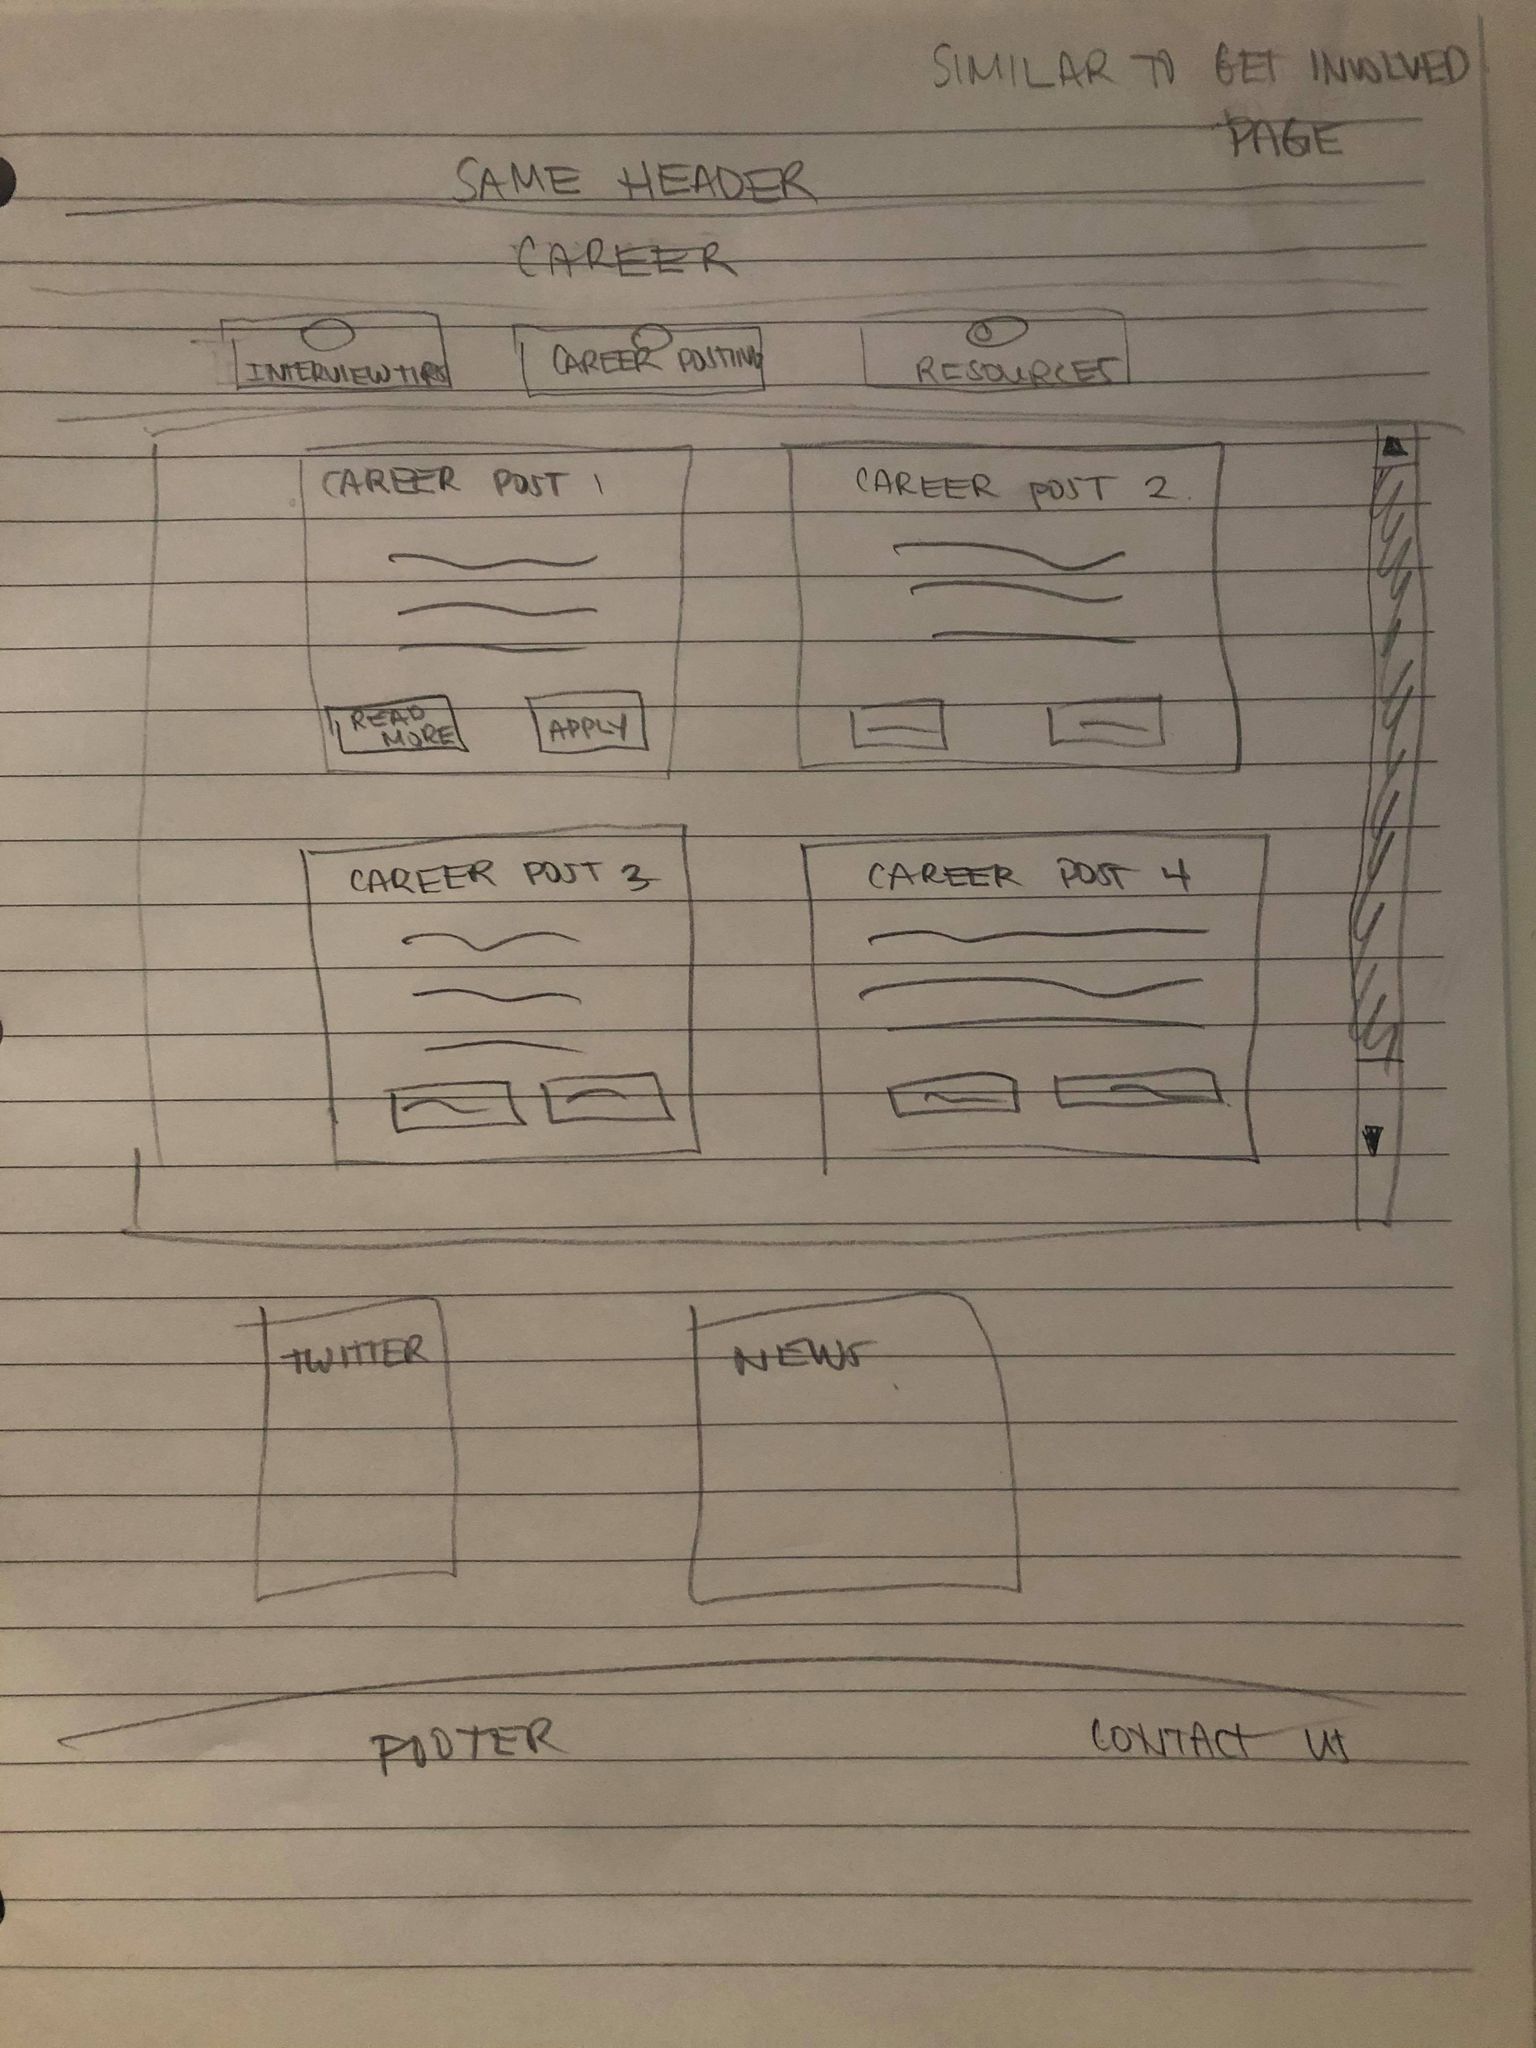 SIMILAR TO GET INVOLVED
PAGE
SAME HEADER
CAREER
INTERVIEW TIPS
CAREER POSTING
RESOURCES
CAREER POST 1
READ
MORE
APPLY
CAREER POST 2
CAREER POST 3
CAREER POST 4
TWITTER
NEWS
FOOTER
CONTACT US